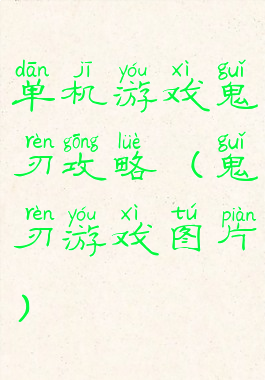 dān jī yóu xì guǐ
单机游戏鬼
rèn gōng lüè guǐ
刃攻略（鬼
rèn yóu xì tú piàn
刃游戏图片
）